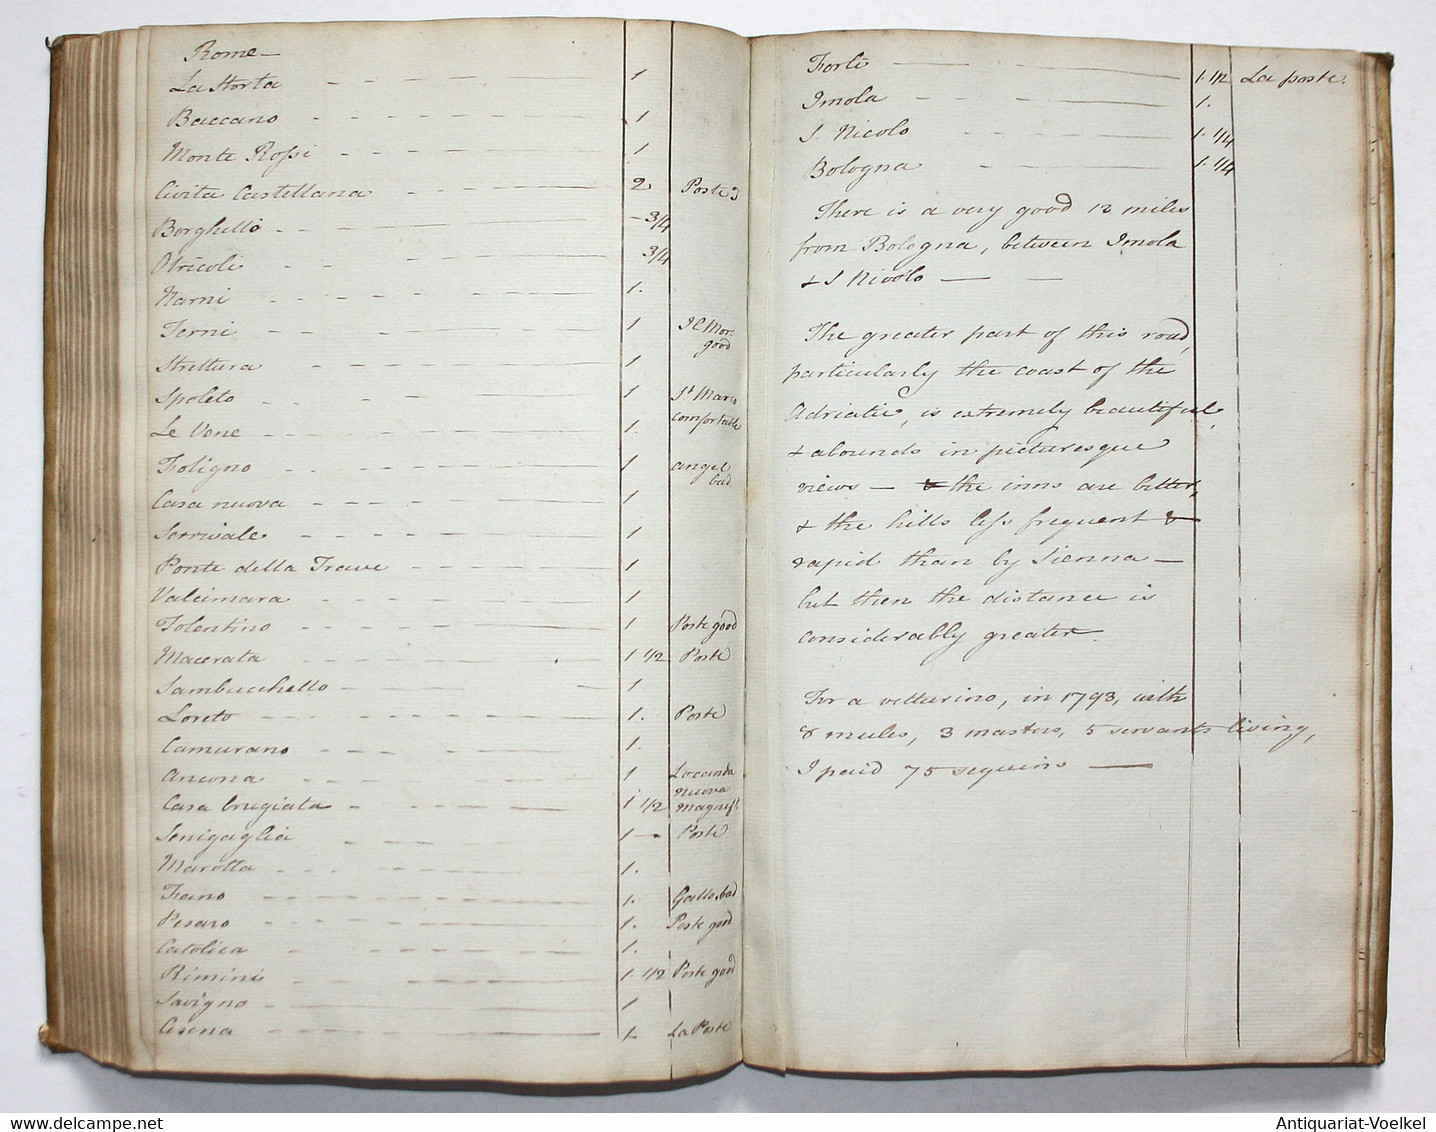 Rome —
La Storta 1
Baccano 1
Monte Rossi 1
Civita Castellana 2 Poste
Borghetto — 3/4
Otricoli 3/4
Narni 1.
Terni 1 good
Strettura 1
Spoleto 1 St Marco
Le Vene 1. comfortable
Foligno 1 angel
bad.
Casa nuova 1
Serrivale 1
Ponte della Trave 1
Valcimara 1
Tolentino 1 Poste good
Macerata 1 1/2 Poste
Sambucchetto 1
Loreto 1. Poste
Camurano 1.
Ancona 1 Locanda
nuova
Casa brugiata 1 1/2 magnift
Senigaglia 1 — Poste
Marotta 1.
Fano 1. Gallo. bad
Pesaro 1. Poste good
Catolica 1.
Rimini 1. 1/2 Poste good
Savigno 1
Cesena 1. La Poste
Forli 1. 1/2 La poste.
Imola 1.
S. Nicolo 1. 1/4
Bologna 1. 1/4
There is a very good 12 miles
from Bologna, between Imola
& S Nicolo —
The greater part of this road,
particularly the coast of the
Adriatic, is extremely beautiful,
& abounds in picturesque
views — the inns are better,
& the hills less frequent &
rapid than by Sienna —
but then the distance is
considerably greater.
For a vetturino, in 1793, with
8 mules, 3 masters, 5 servants living,
I paid 75 sequins —
Antiquariat-Voelkel